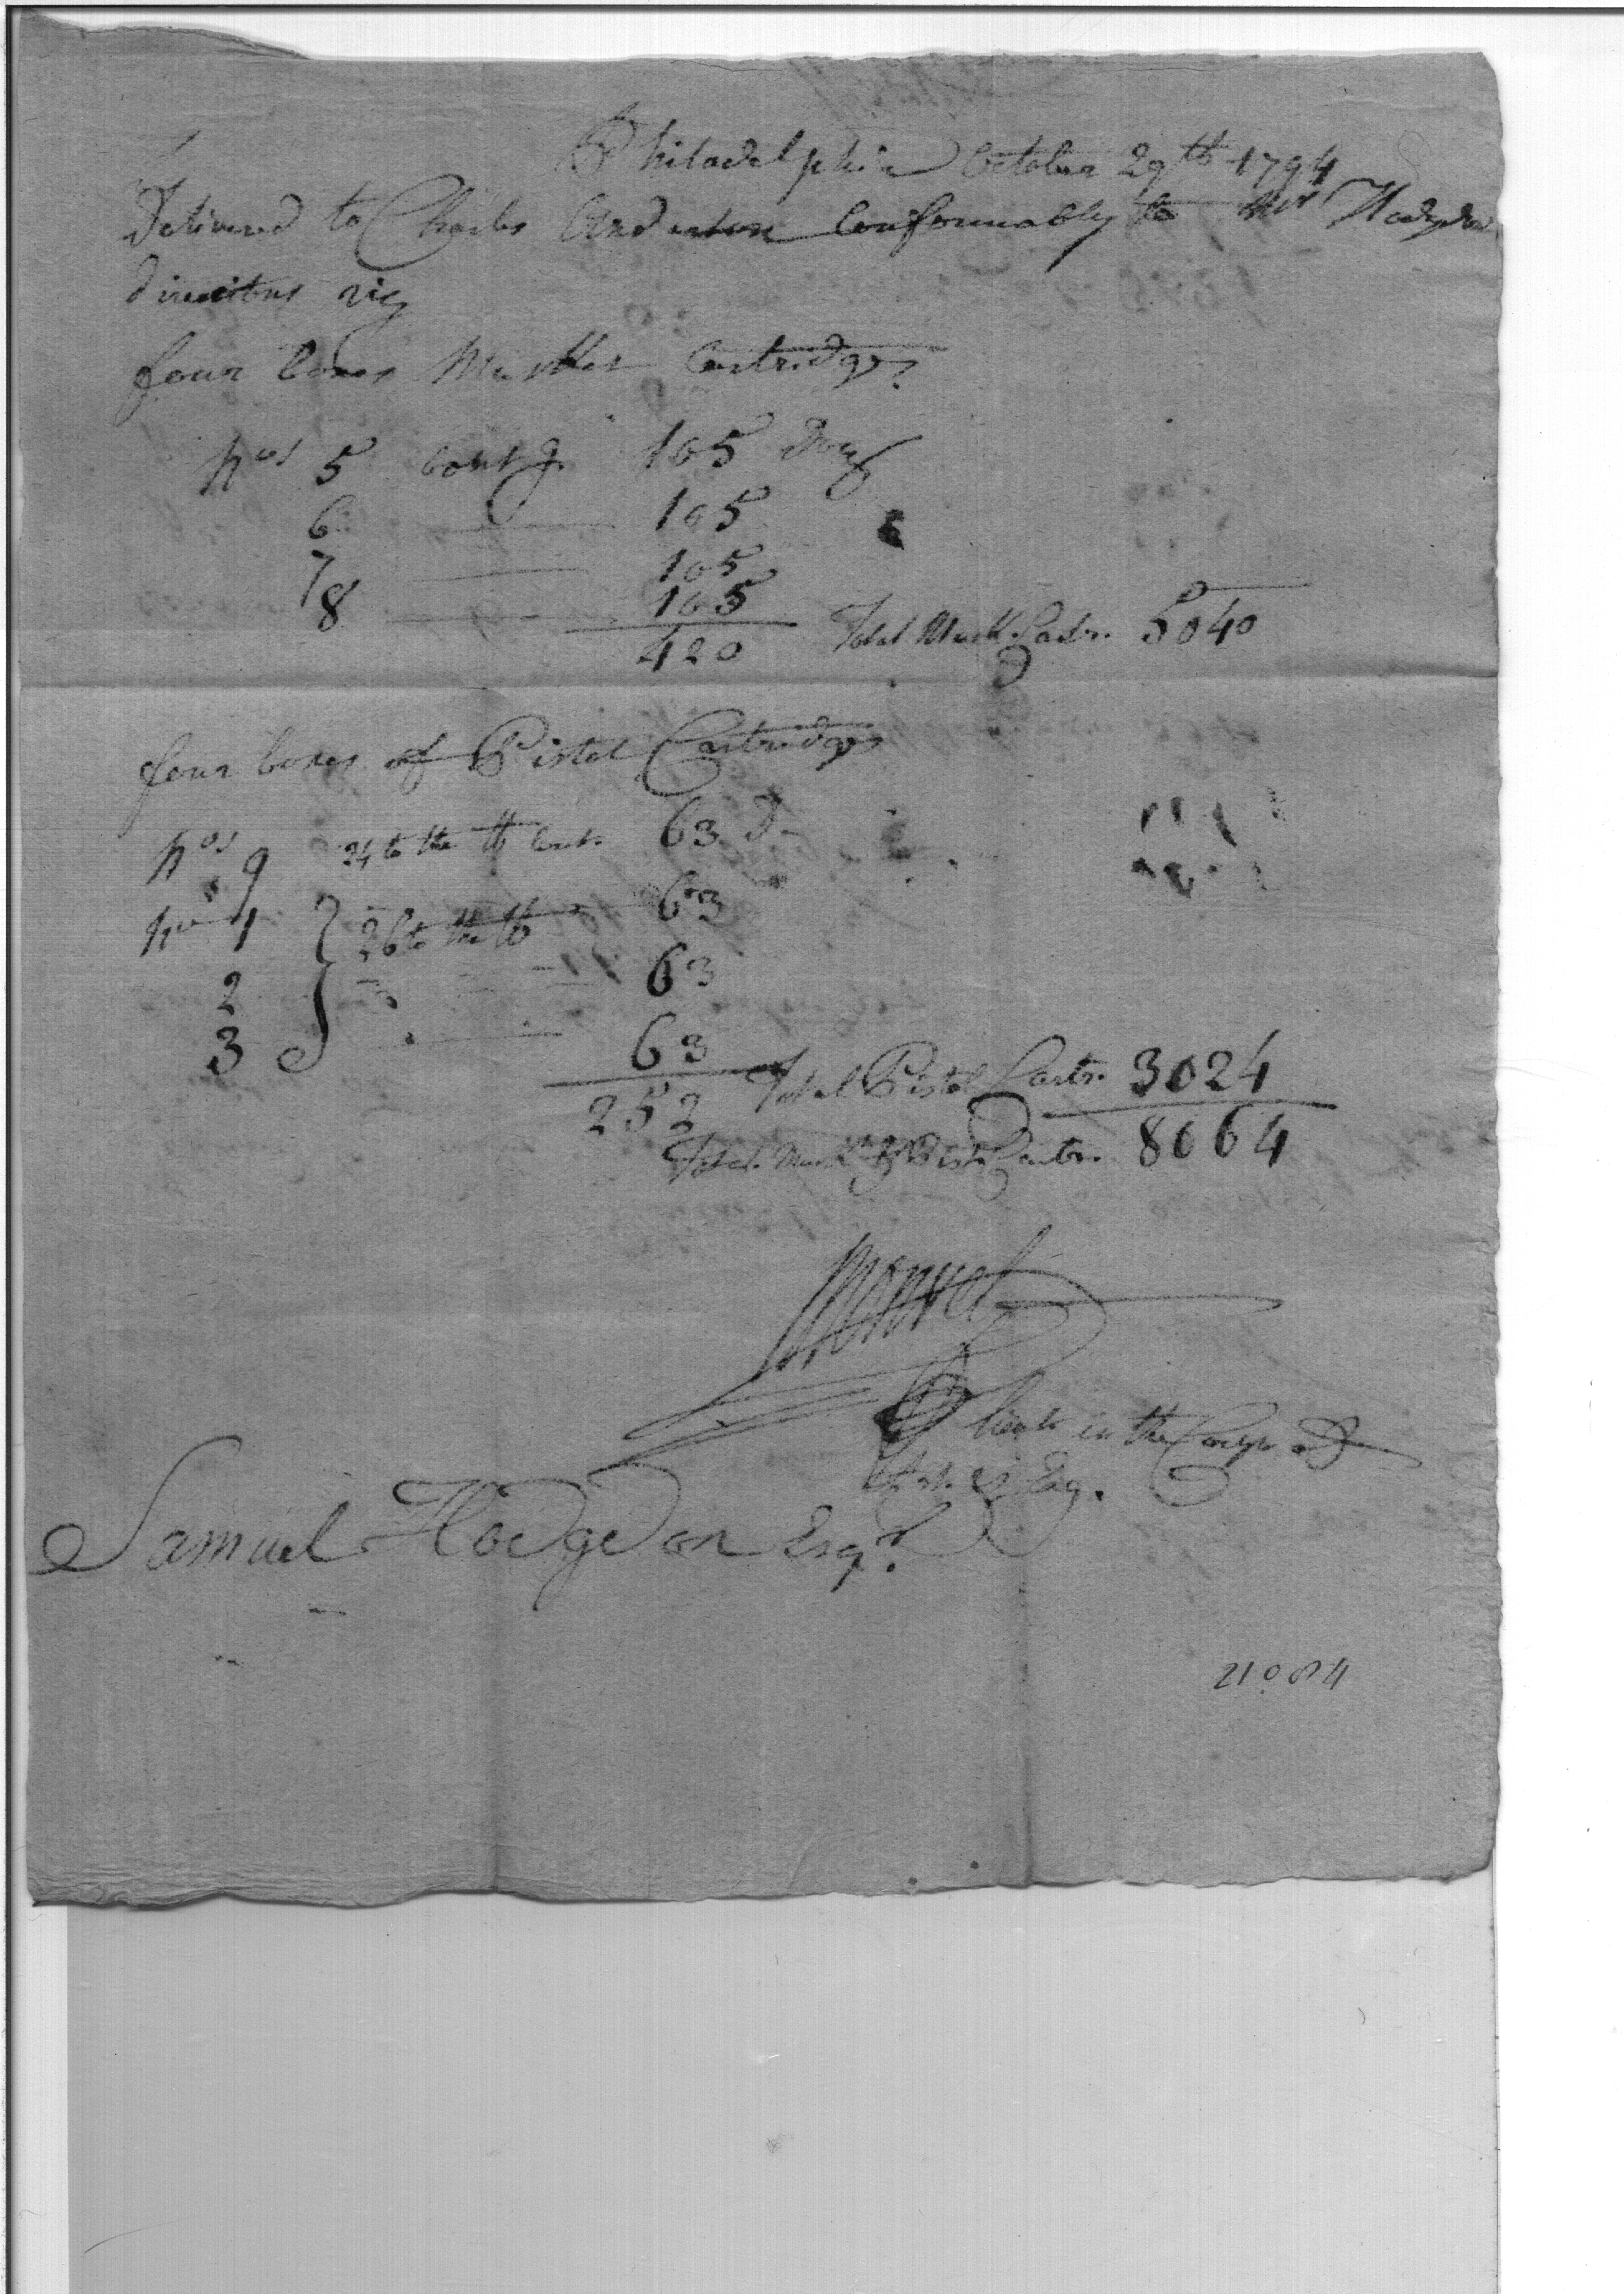 Philadelphia October 29th 1794
Delivered to Charles Anderson Conformably to Mr Hodgdon
directions viz
four boxes Musket Cartridges
Nos 5 contg. 105 doz
6 105
7 105
8 105
420 Total Musk. Cartr. 5040
four boxes of Pistol Cartridges
Nos 9 24 to the lb Cont. 63 d.
No 1 } 26 to the lb 63
2 63
3 63
252 Total Pistol Cartr. 3024
Total Musk. & Pist. Cartr. 8064
Lieut in the Corps of
Art. & Eng.
Samuel Hodgdon Esqr.
21084